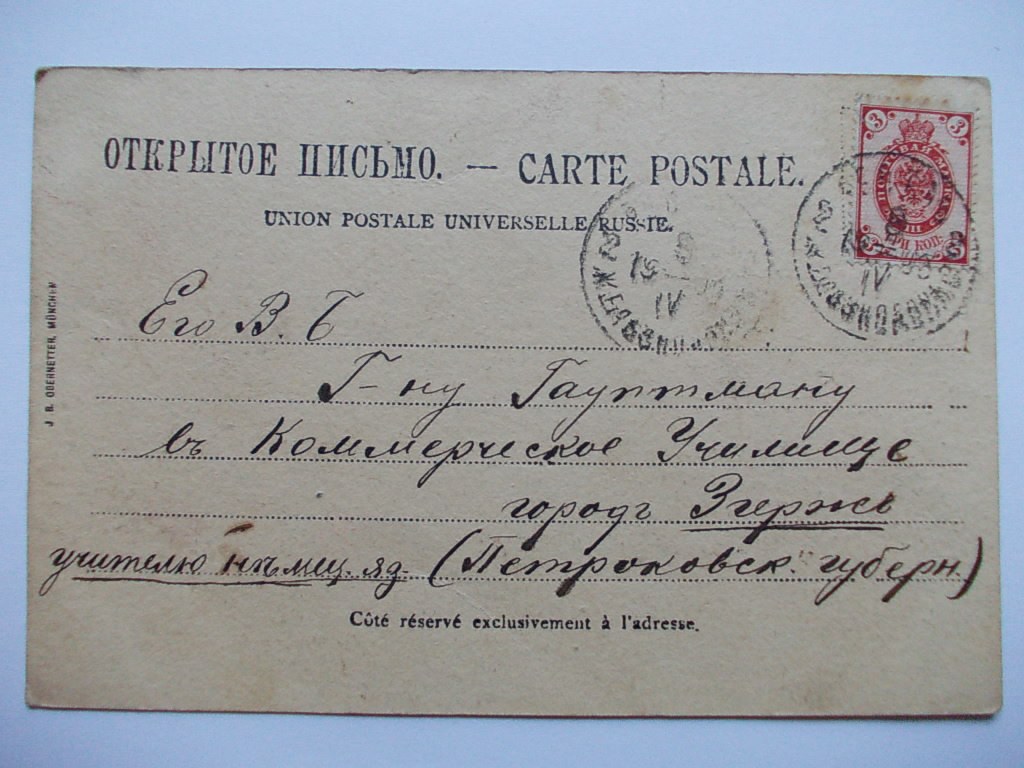 ОТКРЫТОЕ ПИСЬМО. — CARTE POSTALE.
UNION POSTALE UNIVERSELLE RUSSIE.
3 3
ТРИ КОП.
19 8
IV
19 8
IV
Его В. Б
Г-ну Гауптману
въ Коммерческое Училище
городъ Згержъ
учителю нѣмец. яз. (Петроковск. губерн.)
Côté réservé exclusivement à l'adresse.
J. B. OBERNETTER, MÜNCHEN